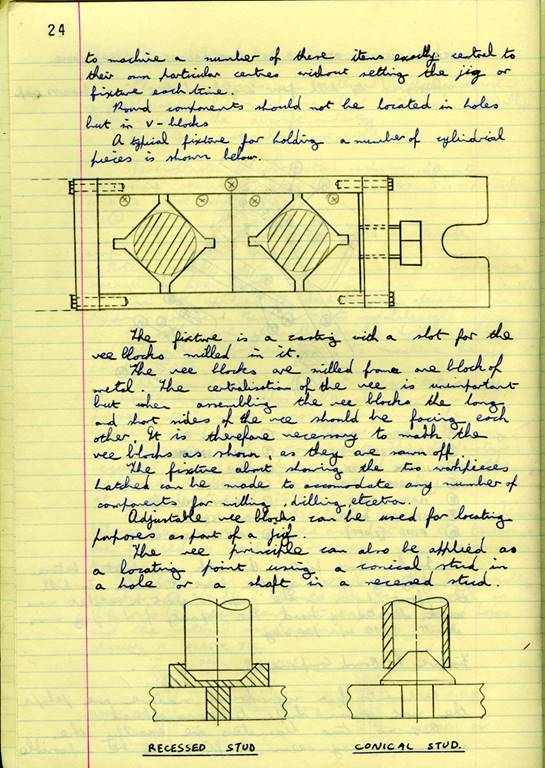 24
to machine a number of these items exactly central to
their own particular centres without setting the jig or
fixture each time.
Round components should not be located in holes
but in V-blocks
A typical fixture for holding a number of cylindrical
pieces is shown below.
The fixture is a casting with a slot for the
vee blocks milled in it.
The vee blocks are milled from one block of
metal. The centralisation of the vee is unimportant
but when assembling the vee blocks the long
and short sides of the vee should be facing each
other. It is therefore necessary to mark the
vee blocks as shown, as they are sawn off.
The fixture about showing the two workpieces
hatched can be made to accomodate any number of
components for milling, drilling, etcetra.
Adjustable vee blocks can be used for locating
purposes as part of a jig.
The vee principle can also be applied as
a locating point using a conical stud in
a hole or a shaft in a recessed stud.
RECESSED STUD
CONICAL STUD.